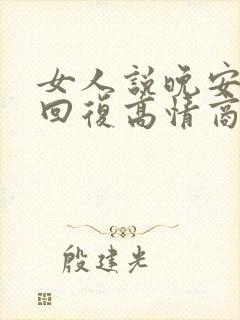 女人説晚安
回復高情商
殷建光